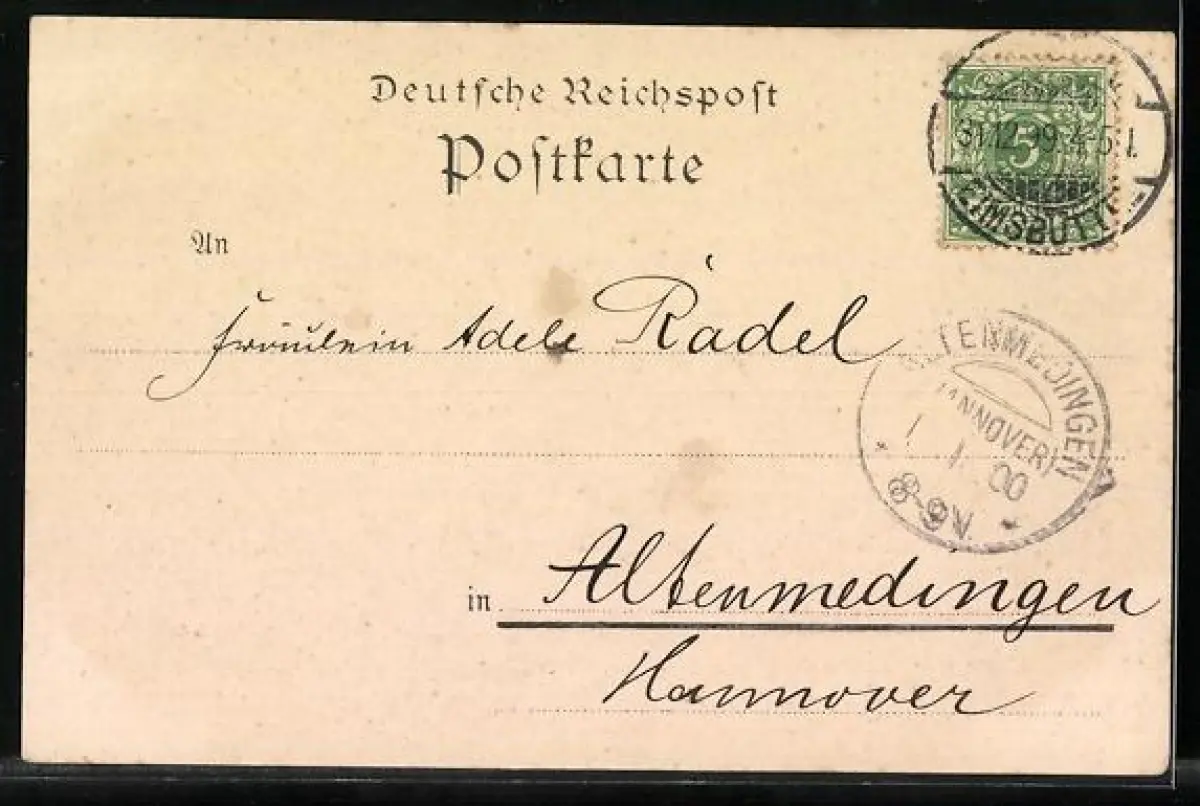 Deutsche Reichspost
Postkarte
5
31.12.99.4-5.
EIMSBÜTT
An
Fräulein Adele Radel
ALTENMEDINGEN
(HANNOVER)
1. 1. 00
8-9V.
in Altenmedingen
Hannover